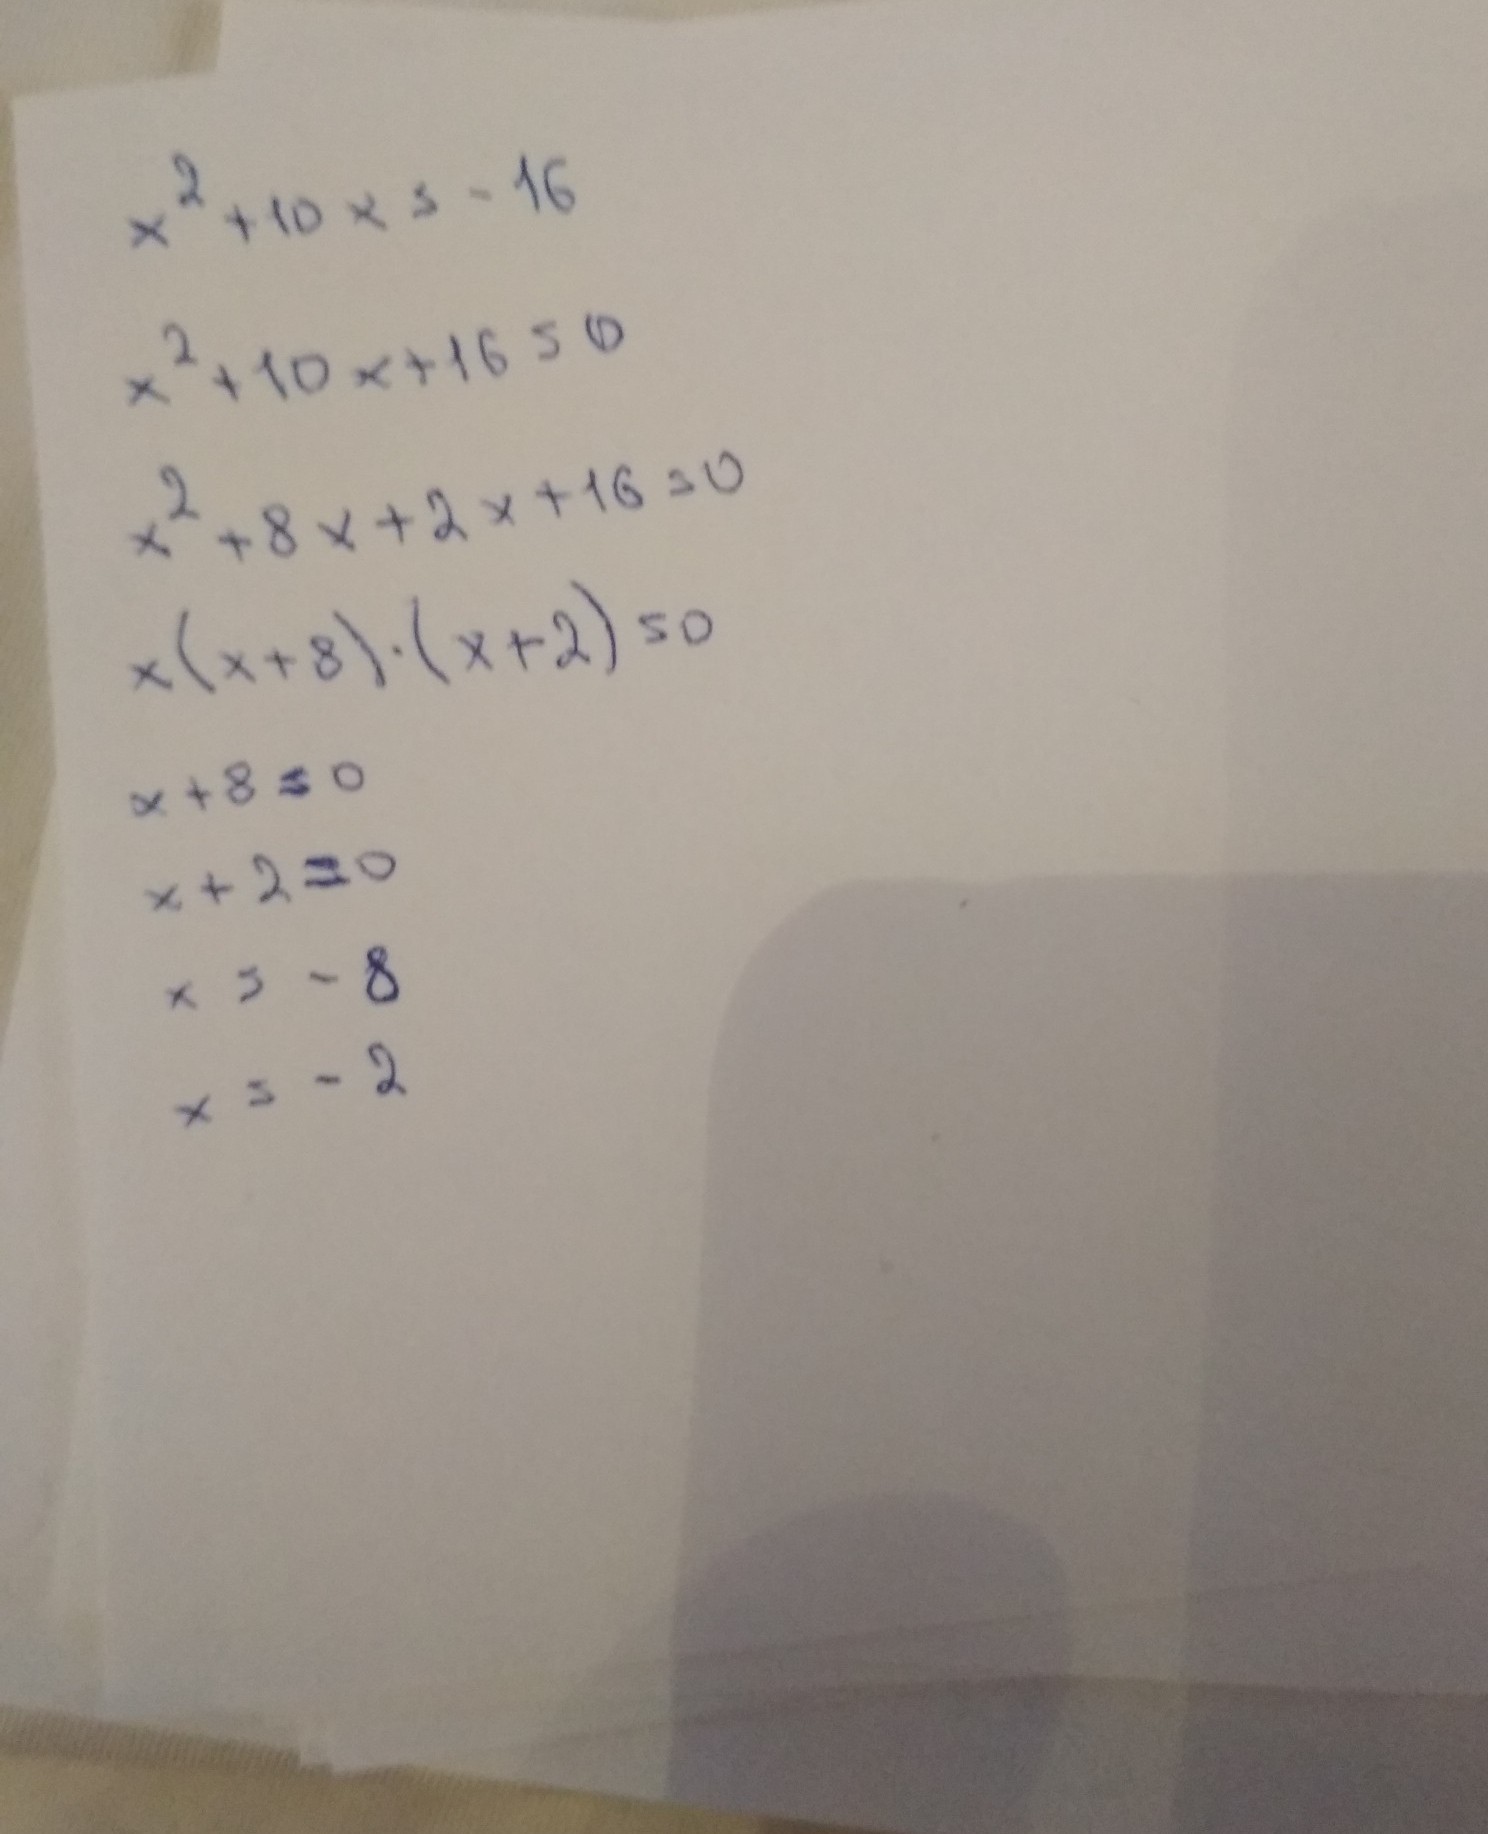 x² + 10x = - 16
x² + 10x + 16 = 0
x² + 8x + 2x + 16 = 0
x(x + 8) · (x + 2) = 0
x + 8 = 0
x + 2 = 0
x = - 8
x = - 2